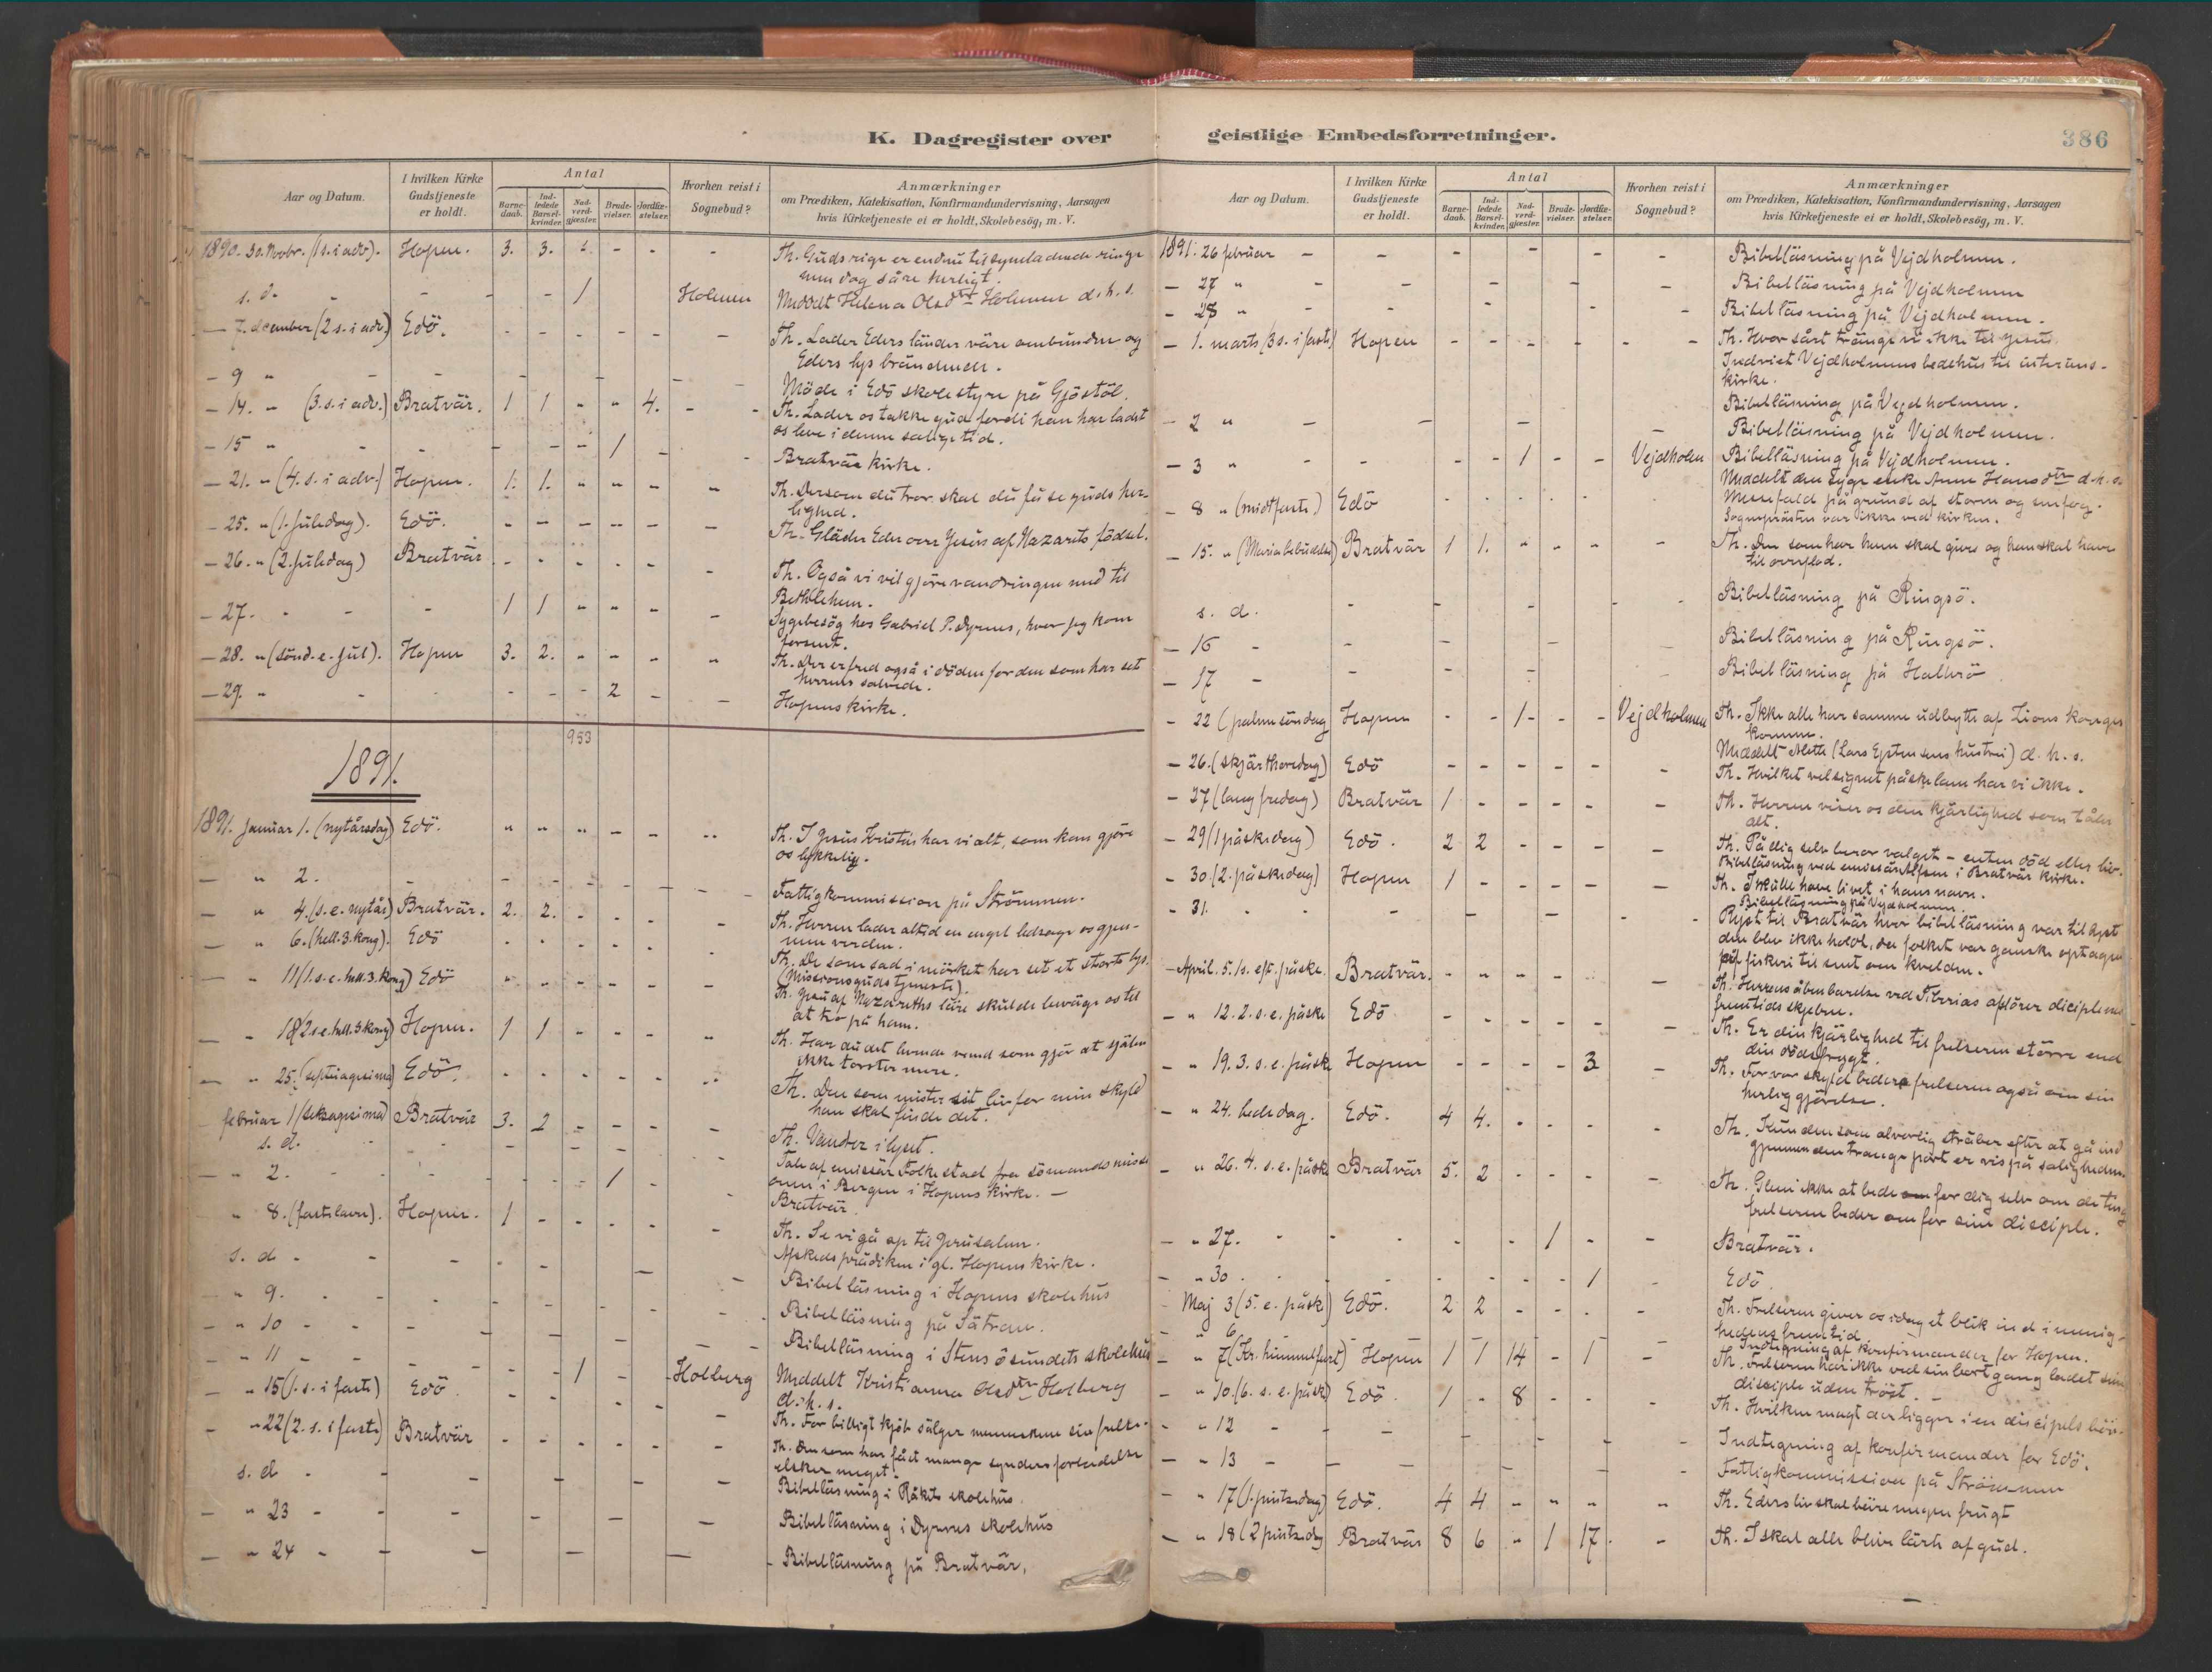 K. Dagregister over
Aar og Datum.
I hvilken Kirke Gudstjeneste er holdt.
Antal
Barne-daab.
Ind-ledede Barsel-kvinder.
Nad-verd-gjæster.
Brude-vielser.
Jordfæ-stelser.
Hvorhen reist i Sognebud?
Anmærkninger
om Prædiken, Katekisation, Konfirmandundervisning, Aarsagen
hvis Kirketjeneste ei er holdt, Skolebesøg, m. V.
1890. 30. Novbr. (1 s. i adv). Hopen. 3. 3. - - - Th. Guds rige er endnu tilsyneladende ringe
men dog såre herligt.
s. d. - - - 1 Holmen Meddelt Helena Olsdtr Holmen d. h. s.
— 7. december (2 s. i adv) Edö. - - - - - - Th. Lader Eders länder väre ombundne og
Eders lys brändende.
— 9 " - - - - - - Möde i Edö skolestyre på Gjöstöl.
— 14. " (3. s. i adv.) Bratvär. 1 1 - - 4. - Th. Lader os takke gud fordi han har ladet
os leve i denne salige tid.
— 15 " - - - - 1 - - Bratvär kirke.
— 21. " (4. s. i adv.) Hopen. 1. 1. - - - - Th. Dersom du tror skal du få se guds her-
lighed.
— 25. " (1. juledag). Edö. - - - - - - Th. Gläder Eder over Jesus af Nazarets födsel.
— 26. " (2. juledag) Bratvär - - - - - - Th. Også vi vil gjöre vandringen med til
Bethlehem.
— 27. - - - 1 1 - - - - Sygebesög hos Gabriel P. Dyrnes, hvor jeg kom
forsent.
— 28. " (sönd. e. jul). Hopen 3. 2. - - - - Th. Der er fred også i döden for den som har set
herrens salvede.
— 29. " - - - - - 2 - - Hopens kirke.
953
1891.
1891. Januar 1. (nytårsdag) Edö. - - - - - - Th. I Jesus Kristus har vi alt, som kan gjöre
os lykkelig.
— " 2. - - - - - - - Fattigkommission på Strömmen.
— " 4. (s. e. nytår) Bratvär. 2. 2. - - - - Th. Herren lader altid en engel ledsage os gjen-
nem verden.
— " 6. (hell. 3. kong). Edö - - - - - - Th. De som sad i mörket har set et stort lys.
(Missionsgudstjeneste).
— " 11 (1. s. e. hell. 3. kong) Edö - - - - - - Th. Jesu af Nazareths läre skulde beväge os til
at tro på ham.
— " 18 (2 s. e. hell. 3 kong) Hopen. 1 1 - - - - Th. Har du det levende vand som gjör at själen
ikke törster mere.
— " 25. (septuagesima) Edö. - - - - - - Th. Den som mister sit liv for min skyld
han skal finde det.
februar 1 (seksagesima) Bratvär 3. 2 - - - - Th. Vandrer i lyset.
s. d. - - - - - - - Tale af emissär Folkestad fra sömandsmissi-
onen i Bergen i Hopens kirke. —
- " 2. - - - - 1 - - Bratvär.
" 8. (fastelavn). Hopen. 1 - - - - - Th. Se vi gå op til Jerusalem.
s. d - - - - - - - Afskedsprädiken i gl. Hopens kirke.
- " 9. - - - - - - - Bibelläsning i Hopens skolehus
- " 10 - - - - - - - Bibelläsning på Sätran.
— " 11 - - - - - - - Bibelläsning i Stensösundets skolehus
— " 15 (1. s. i faste) Edö - - 1 - - Holberg Meddelt Kristianna Olsdtr Holberg
d. h. s.
Th. For billigt kjöb sälger menneskene sin frelse.
— " 22 (2. s. i faste) Bratvär - - - - - - Th. Den som har fået mange synders forladelse
elsker meget.
— s. d - - - - - - - Bibelläsning i Råkets skolehus.
— " 23 - - - - - - - Bibelläsning i Dyrnes skolehus
— " 24 - - - - - - - Bibelläsning på Bratvär.
geistlige Embedsforretninger.
386
Aar og Datum.
I hvilken Kirke Gudstjeneste er holdt.
Antal
Barne-daab.
Ind-ledede Barsel-kvinder.
Nad-verd-gjæster.
Brude-vielser.
Jordfæ-stelser.
Hvorhen reist i Sognebud?
Anmærkninger
om Prædiken, Katekisation, Konfirmandundervisning, Aarsagen
hvis Kirketjeneste ei er holdt, Skolebesøg, m. V.
1891. 26 februar - - - - - - Bibelläsning på Vejdholmen.
— 27 " - - - - - - Bibelläsning på Vejdholmen
- 28 " - - - - - - Bibelläsning på Vejdholmen.
— 1. marts (3 s. i faste) Hopen - - - - - - Th. Hvor sårt tränge vi ikke til Jesus.
Indviet Vejdholmens bedehus til interims-
kirke.
Bibelläsning på Vejdholmen.
— 2 " - - - - Bibelläsning på Vejdholmen.
— 3 " - - - 1 - - Vejdholm Bibelläsning på Vejdholmen.
Meddelt den syge enke Anne Hansdtr d. h. s.
— 8 " (midtfaste) Edö - - - - - - Messefald på grund af storm og snefog.
Sogneprästen var ikke ved kirken.
— 15. " (Maria bebudelse) Bratvär 1 1. - - - - Th. Den som har ham skal gives og han skal have
til overflod.
s. d. - - - - - Bibelläsning på Ringsö.
— 16 - - - - - - Bibelläsning på Ringsö.
— 17 - - - - - - Bibelläsning på
- 22 (palmesöndag Hopen - - 1 - - Vejdholmen Th. Ikke alle har samme udbytte af Zions konges
komme.
Meddelt Mette (Lars Eystensens hustru) d. h. s.
— 26. (skjärthorsdag) Edö - - - - - - Th. Hvilket velsignet påskelam har vi ikke.
— 27 (langfredag) Bratvär 1 - - - - - Th. Herren viser os den kjärlighed som tåler
alt.
— 29 (1 påskedag) Edö. 2 2 - - - - Th. På dig selv beror valget — enten död eller liv.
Bibelläsning ved emissär i Bratvär kirke.
— 30 (2. påskedag) Hopen 1 - - - - - Th. I skulle have livet i hans navn.
Bibelläsning på Vejdholmen.
- 31. - - - - - - - Rejst til Bratvär hvor bibelläsning var tillyst
den blev ikke holdt, da folket var ganske optagen
på fiskeri til sent om kvelden.
— April. 5. 1 s. eft. påske. Bratvär. - - - - - - Th. Herrens åbenbarelse ved Tiberias afslörer disciplenes
fremtids skjebne.
— " 12. 2. s. e. påske Edö - - - - - - Th. Er din kjärlighed til frelseren större end
din dödsfrygt.
— " 19. 3. s. e. påske Hopen - - - - 3 - Th. For vor skyld beder frelseren også om sin
herliggjörelse.
— " 24. bededag. Edö. 4 4. - - - - Th. Kun den som alvorlig sträber efter at gå ind
gjennem den trange port er vis på saligheden.
— " 26. 4. s. e. påske Bratvär 5. 2 - - - - Th. Glem ikke at bede for dig selv om de ting
frelseren beder om for sine disciple.
— " 27. - - - - - 1 - - Bratvär.
— " 30. - - - - - - 1 - Edö.
Maj 3 (5. e. påske) Edö. 2 2 - - - - Th. Frelseren giver os idag et blik ind i menig-
hedens fremtid
— " 6 Indtegning af konfirmander for Hopen.
— " 7 (Kr. himmelfart) Hopen 1 1 14 - 1 - Th. Frelseren har ikke ved sin bortgang ladet sine
disciple uden tröst.
— " 10. (6. s. e. påske) Edö. 1 - 8 - - - Th. Hvilken magt der ligger i en discipels bön.
— " 12 - - - - - - - Indtegning af konfirmander for Edö.
— " 13 - - - - - - - Fattigkommission på Strömmen
- " 17 (1. pintsedag) Edö. 4 4 - - - - Th. Eders liv skal bäre megen frugt
— " 18 (2 pintsedag Bratvär 8 6 - 1 17. - Th. I skal alle blive lärte af gud.